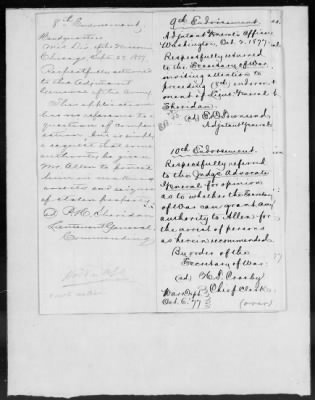 8th Endorsement,
Headquarters
Mil. Div. of the Missouri
Chicago, Sept. 27 1877
Respectfully returned
to the Adjutant
General of the Army.
This application
has no reference to a
question of
but is simply
a request that some
authority be given
Mr. Allen to
known
arrests and seizure
of stolen property.
(sd) P. H. Sheridan
Lieutenant General,
Commanding
9th Endorsement.
Adjutant General's Office
Washington, Oct. 2, 1877.
Respectfully returned
to the Secretary of War,
inviting attention to
preceding (8th) endorse-
ment of Lieut. General
Sheridan.
(sd) E. D. Townsend
Adjutant General.
10th Endorsement.
Respectfully referred
to the Judge Advocate
General for opinion
as to whether the Secretary
of War can grant any
authority to Allen for
the arrest of persons
as herein recommended.
By order of the
Secretary of War.
(sd) H. T. Crosby
Chief Clerk.
War Dept.
Oct. 6. 77
(over)